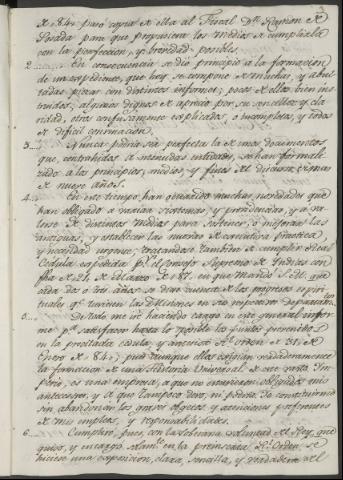 de 84,, pasó copia de ella al Fiscal Dn. Ramon de
Posada para que propusiera los medios de cumplirla
con la perfeccion, y brevedad posible.
2... En consecuencia se dió principio á la formacion
de un expediente, que hoy se compone de muchas, y abul-
tadas piezas con distintos informes; pocos de ellos bien ins-
truidos; algunos dignos de aprecio por su sencillez y cla-
ridad; otros confusamente explicados, é incompletos, y todos
de dificil
3... Nunca podria ser perfecta la de unos documentos
que, contrahidos á intenciones se han formali-
zado á los principios, medios, y fines del discurso de mas
de nueve años.
4... En este tiempo han ocurrido muchas novedades que
han obligado á variar sistemas, y providencias, y á va-
lerse de distintos medios para sostener, ó mejorar las
antiguas, y establecer las nuevas de
y necesidad urgente; tratandose tambien de cumplir Real
Cedula expedida pr. el Consejo Supremo de Indias con
fha de 21 de Marzo de 87. en que Mandó S. M. que
cada dos ó tres años se diese cuenta de los progresos espiri-
tuales qe. tuviesen las Misiones en sus respectivos
5... De todo me iré haciendo cargo en este general infor-
me pa. satisfacer hasta lo posible los puntos prevenidos
en la precitada cedula, y anterior Rl. orden de 31 de
Enero de 84,, pues aunque ellas exigian verdaderamente
la formacion de una Historia Universal de este vasto Im-
perio, es una empresa, á que no estuvieron obligados mis
antecesores, y á que tampoco devo, ni podria Yo constituirme
sin abandonar los graves objetos y atenciones preferentes
de mi empleo, y responsabilidades.
6... Cumpliré, pues, con la soberana voluntad del Rey, que
quiso, y encargó solamte. en la Rl. Orden se
hiciese una exposicion clara, sencilla, y verdadera del